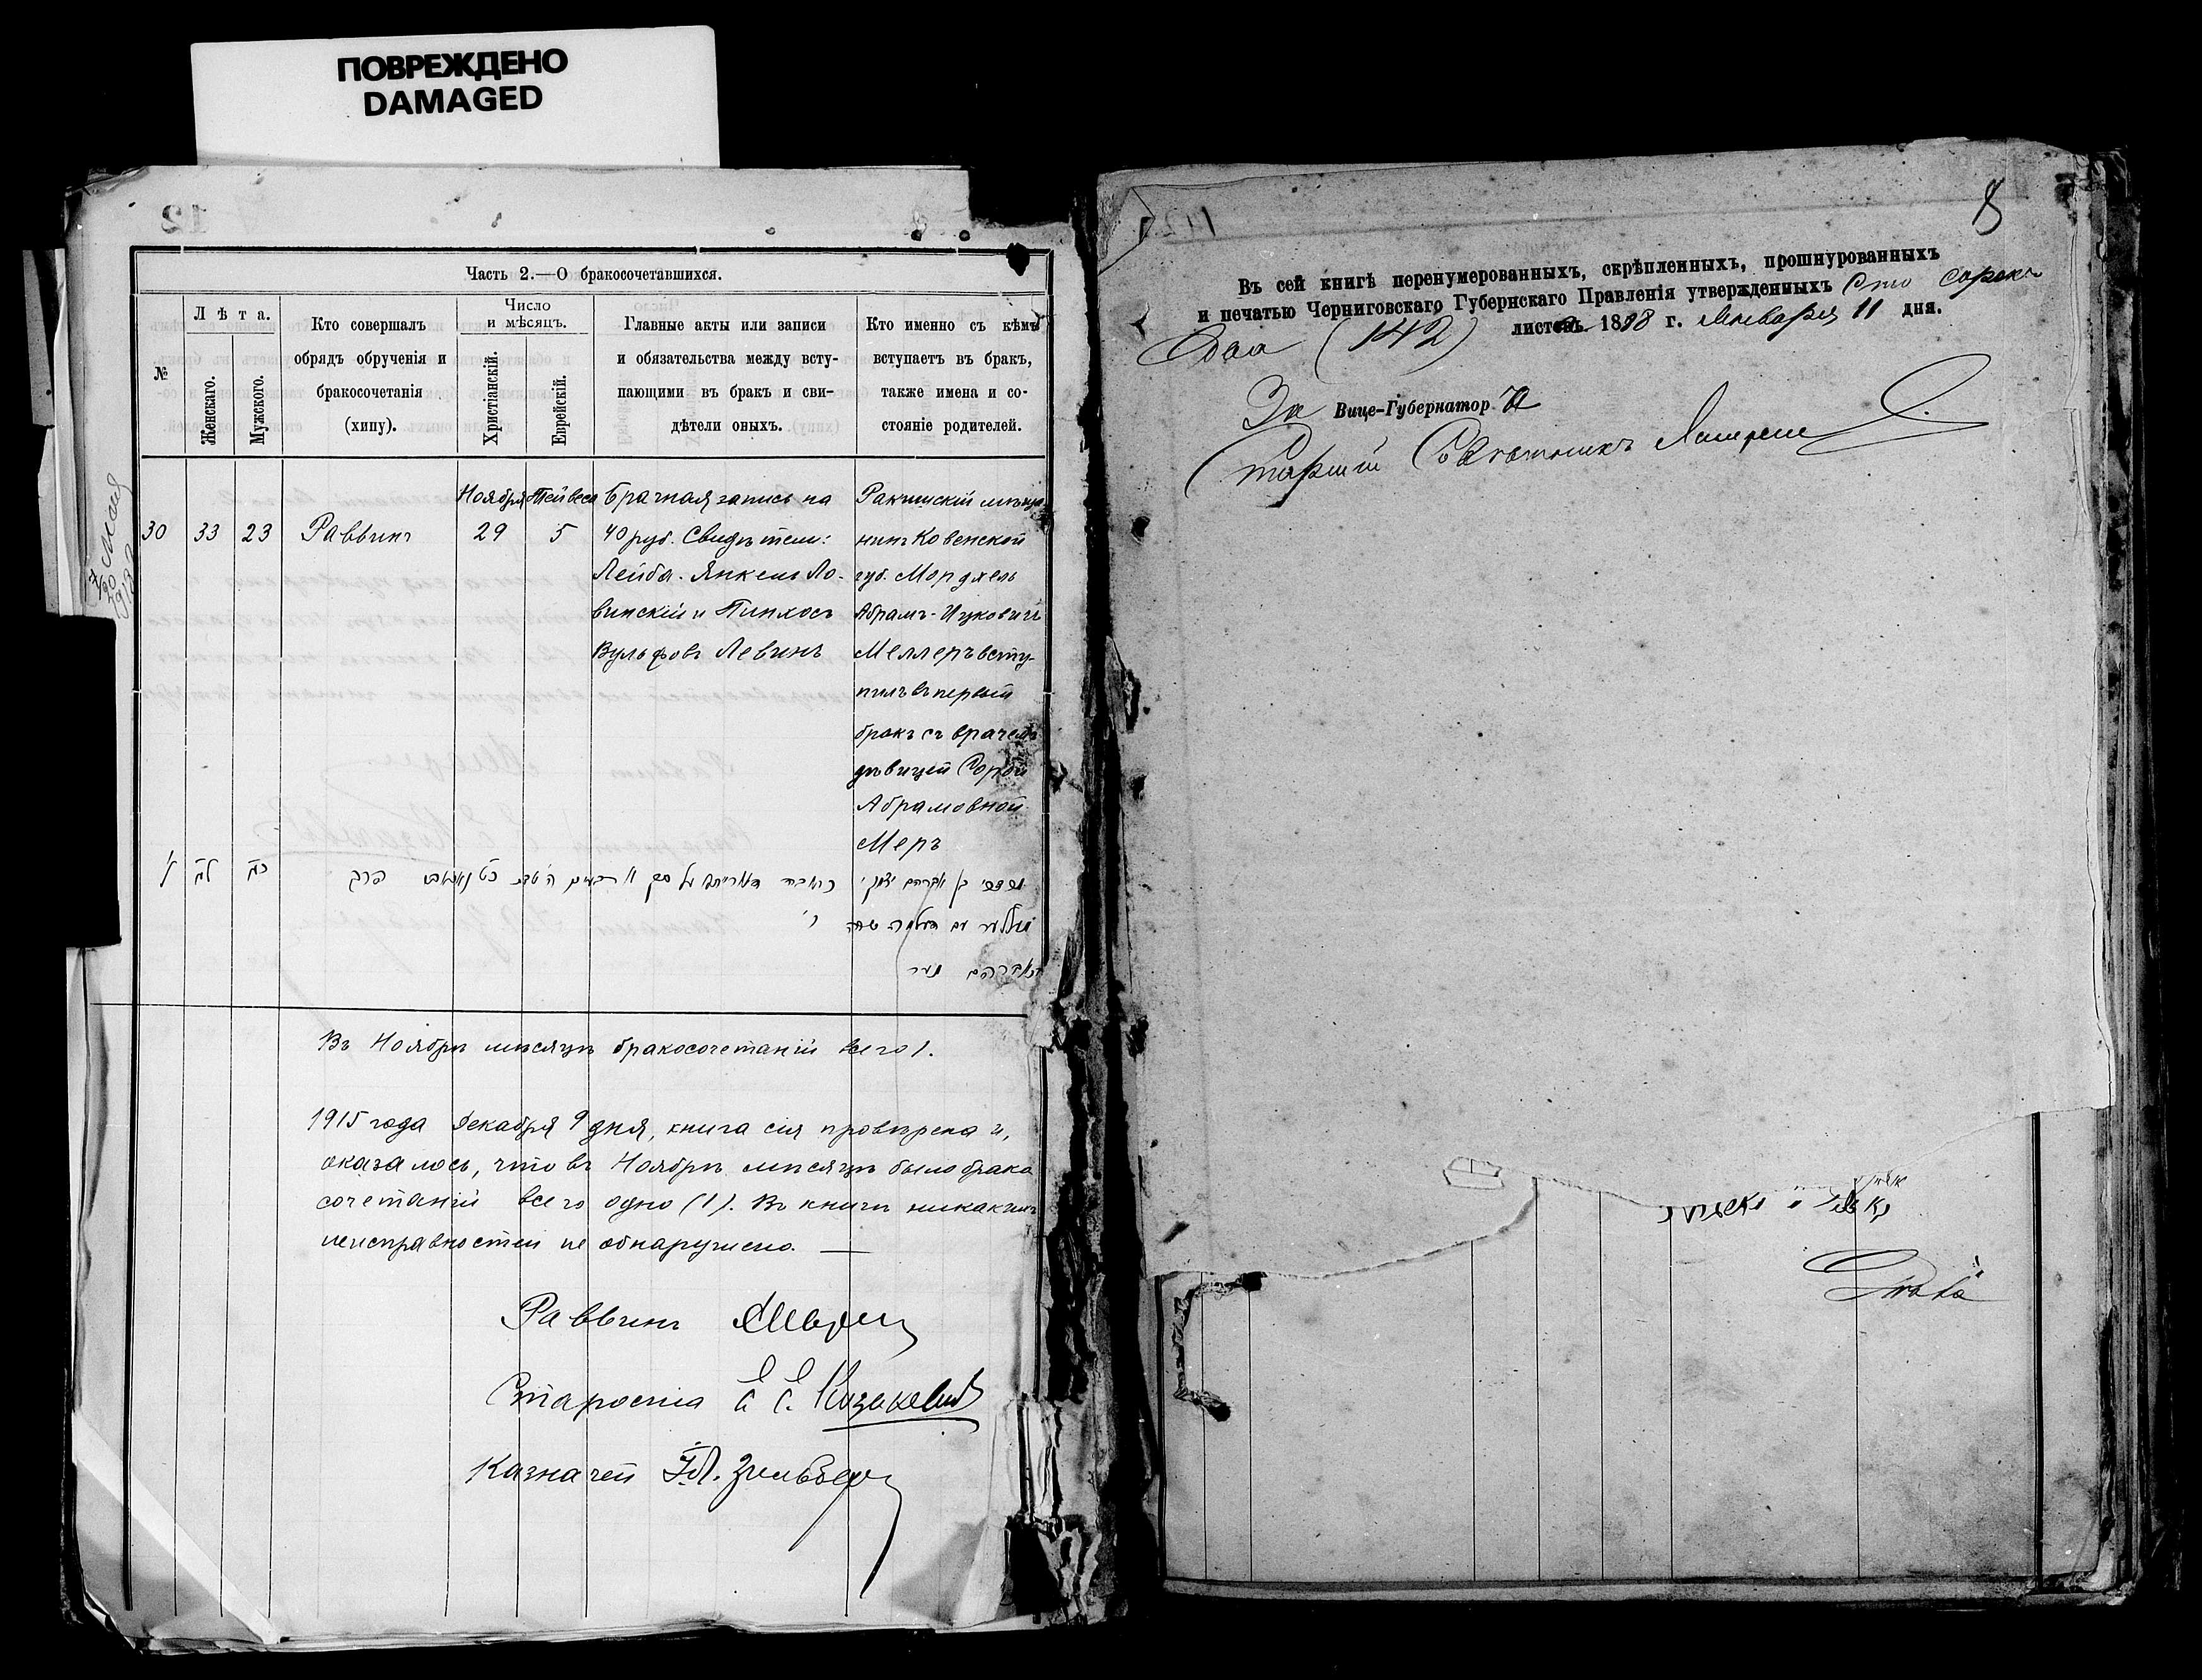 ПОВРЕЖДЕНО
DAMAGED
Часть 2.—О бракосочетавшихся.
№
Лѣта.
Женскаго.
Мужского.
Кто совершалъ
обрядъ обрученія и
бракосочетанія
(хипу).
Число
и мѣсяцъ.
Христіанскій.
Еврейскій.
Главные акты или записи
и обязательства между всту-
пающими въ бракъ и сви-
дѣтели оныхъ.
Кто именно съ кѣмъ
вступаетъ въ бракъ,
также имена и со-
стояніе родителей.
30
33
23
Раввинъ
Ноября
29
Тейвеса
5
Брачная запись на
40 руб. Свидѣтели:
Лейба-Янкель Ло-
винскій и Пинхосъ
Вульфовъ Левинъ
Ракишскій мѣща
нинъ Ковенской
губ. Мордхель
Абрамъ-Ицковичъ
Меллеръ всту-
пилъ въ первый
бракъ съ врачемъ
дѣвицей Сорой
Абрамовной
Меръ
לג
כג
Въ Ноябрѣ мѣсяцѣ бракосочетаній всего 1.
1915 года Декабря 9 дня, книга сія провѣрена и,
оказалось, что въ Ноябрѣ мѣсяцѣ было брако
сочетаній всего одно (1). Въ книгѣ никакихъ
неисправностей не обнаружено. —
Раввинъ
Староста Е. Козакевичъ
Казначей
8
Въ сей книгѣ перенумерованныхъ, скрѣпленныхъ, прошнурованныхъ
и печатью Черниговскаго Губернскаго Правленія утвержденныхъ Сто сорокъ
два (142) листовъ. 1898 г. Января 11 дня.
За Вице-Губернатора
Старшій Совѣтникъ